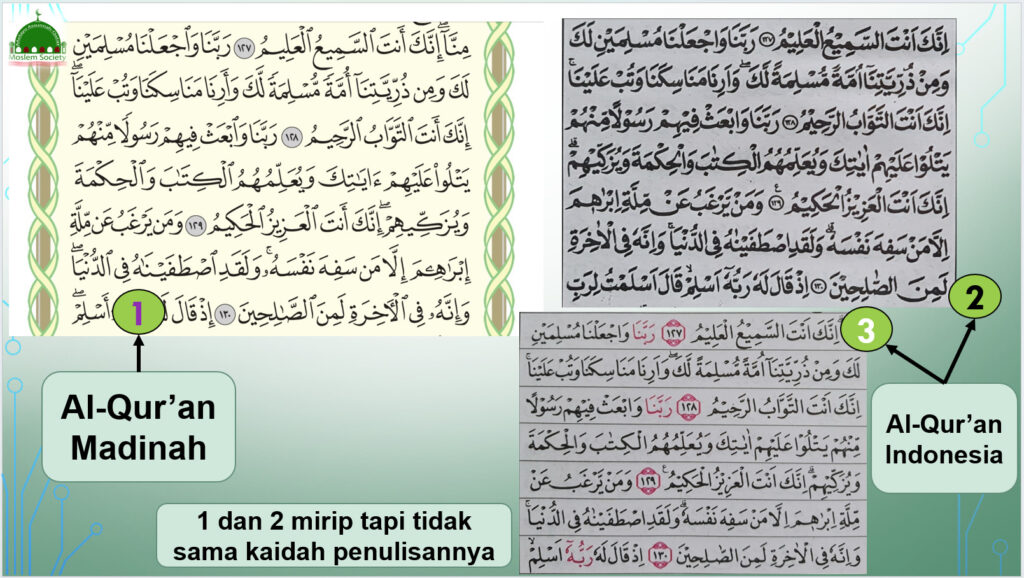 Moslem Society
مِنَّآۖ إِنَّكَ أَنتَ ٱلسَّمِيعُ ٱلْعَلِيمُ ١٢٧ رَبَّنَا وَٱجْعَلْنَا مُسْلِمَيْنِ
لَكَ وَمِن ذُرِّيَّتِنَآ أُمَّةً مُّسْلِمَةً لَّكَ وَأَرِنَا مَنَاسِكَنَا وَتُبْ عَلَيْنَآۖ
إِنَّكَ أَنتَ ٱلتَّوَّابُ ٱلرَّحِيمُ ١٢٨ رَبَّنَا وَٱبْعَثْ فِيهِمْ رَسُولًا مِّنْهُمْ
يَتْلُوا۟ عَلَيْهِمْ ءَايَـٰتِكَ وَيُعَلِّمُهُمُ ٱلْكِتَـٰبَ وَٱلْحِكْمَةَ
وَيُزَكِّيهِمْۚ إِنَّكَ أَنتَ ٱلْعَزِيزُ ٱلْحَكِيمُ ١٢٩ وَمَن يَرْغَبُ عَن مِّلَّةِ
إِبْرَٰهِـۧمَ إِلَّا مَن سَفِهَ نَفْسَهُۥۚ وَلَقَدِ ٱصْطَفَيْنَـٰهُ فِى ٱلدُّنْيَاۖ
وَإِنَّهُۥ فِى ٱلْـَٔاخِرَةِ لَمِنَ ٱلصَّـٰلِحِينَ ١٣٠ إِذْ قَالَ أَسْلِمْۖ
1
Al-Qur’an
Madinah
اِنَّكَ اَنْتَ السَّمِيْعُ الْعَلِيْمُ ١٢٧ رَبَّنَا وَاجْعَلْنَا مُسْلِمَيْنِ لَكَ
وَمِنْ ذُرِّيَّتِنَآ اُمَّةً مُّسْلِمَةً لَّكَۖ وَاَرِنَا مَنَاسِكَنَا وَتُبْ عَلَيْنَاۚ
اِنَّكَ اَنْتَ التَّوَّابُ الرَّحِيْمُ ١٢٨ رَبَّنَا وَابْعَثْ فِيْهِمْ رَسُوْلًا مِّنْهُمْ
يَتْلُوْا عَلَيْهِمْ اٰيٰتِكَ وَيُعَلِّمُهُمُ الْكِتٰبَ وَالْحِكْمَةَ وَيُزَكِّيْهِمْۗ
اِنَّكَ اَنْتَ الْعَزِيْزُ الْحَكِيْمُ ١٢٩ وَمَنْ يَّرْغَبُ عَنْ مِّلَّةِ اِبْرٰهٖمَ
اِلَّا مَنْ سَفِهَ نَفْسَهٗۗ وَلَقَدِ اصْطَفَيْنٰهُ فِى الدُّنْيَاۚ وَاِنَّهٗ فِى الْاٰخِرَةِ
لَمِنَ الصّٰلِحِيْنَ ١٣٠ اِذْ قَالَ لَهٗ رَبُّهٗٓ اَسْلِمْۙ قَالَ اَسْلَمْتُ لِرَبِّ
2
اِنَّكَ اَنْتَ السَّمِيْعُ الْعَلِيْمُ ١٢٧ رَبَّنَا وَاجْعَلْنَا مُسْلِمَيْنِ
لَكَ وَمِنْ ذُرِّيَّتِنَآ اُمَّةً مُّسْلِمَةً لَّكَۖ وَاَرِنَا مَنَاسِكَنَا وَتُبْ عَلَيْنَاۚ
اِنَّكَ اَنْتَ التَّوَّابُ الرَّحِيْمُ ١٢٨ رَبَّنَا وَابْعَثْ فِيْهِمْ رَسُوْلًا
مِّنْهُمْ يَتْلُوْا عَلَيْهِمْ اٰيٰتِكَ وَيُعَلِّمُهُمُ الْكِتٰبَ وَالْحِكْمَةَ
وَيُزَكِّيْهِمْۗ اِنَّكَ اَنْتَ الْعَزِيْزُ الْحَكِيْمُ ١٢٩ وَمَنْ يَّرْغَبُ عَنْ
مِّلَّةِ اِبْرٰهٖمَ اِلَّا مَنْ سَفِهَ نَفْسَهٗۗ وَلَقَدِ اصْطَفَيْنٰهُ فِى الدُّنْيَاۚ
وَاِنَّهٗ فِى الْاٰخِرَةِ لَمِنَ الصّٰلِحِيْنَ ١٣٠ اِذْ قَالَ لَهٗ رَبُّهٗٓ اَسْلِمْۙ
3
Al-Qur’an
Indonesia
1 dan 2 mirip tapi tidak
sama kaidah penulisannya